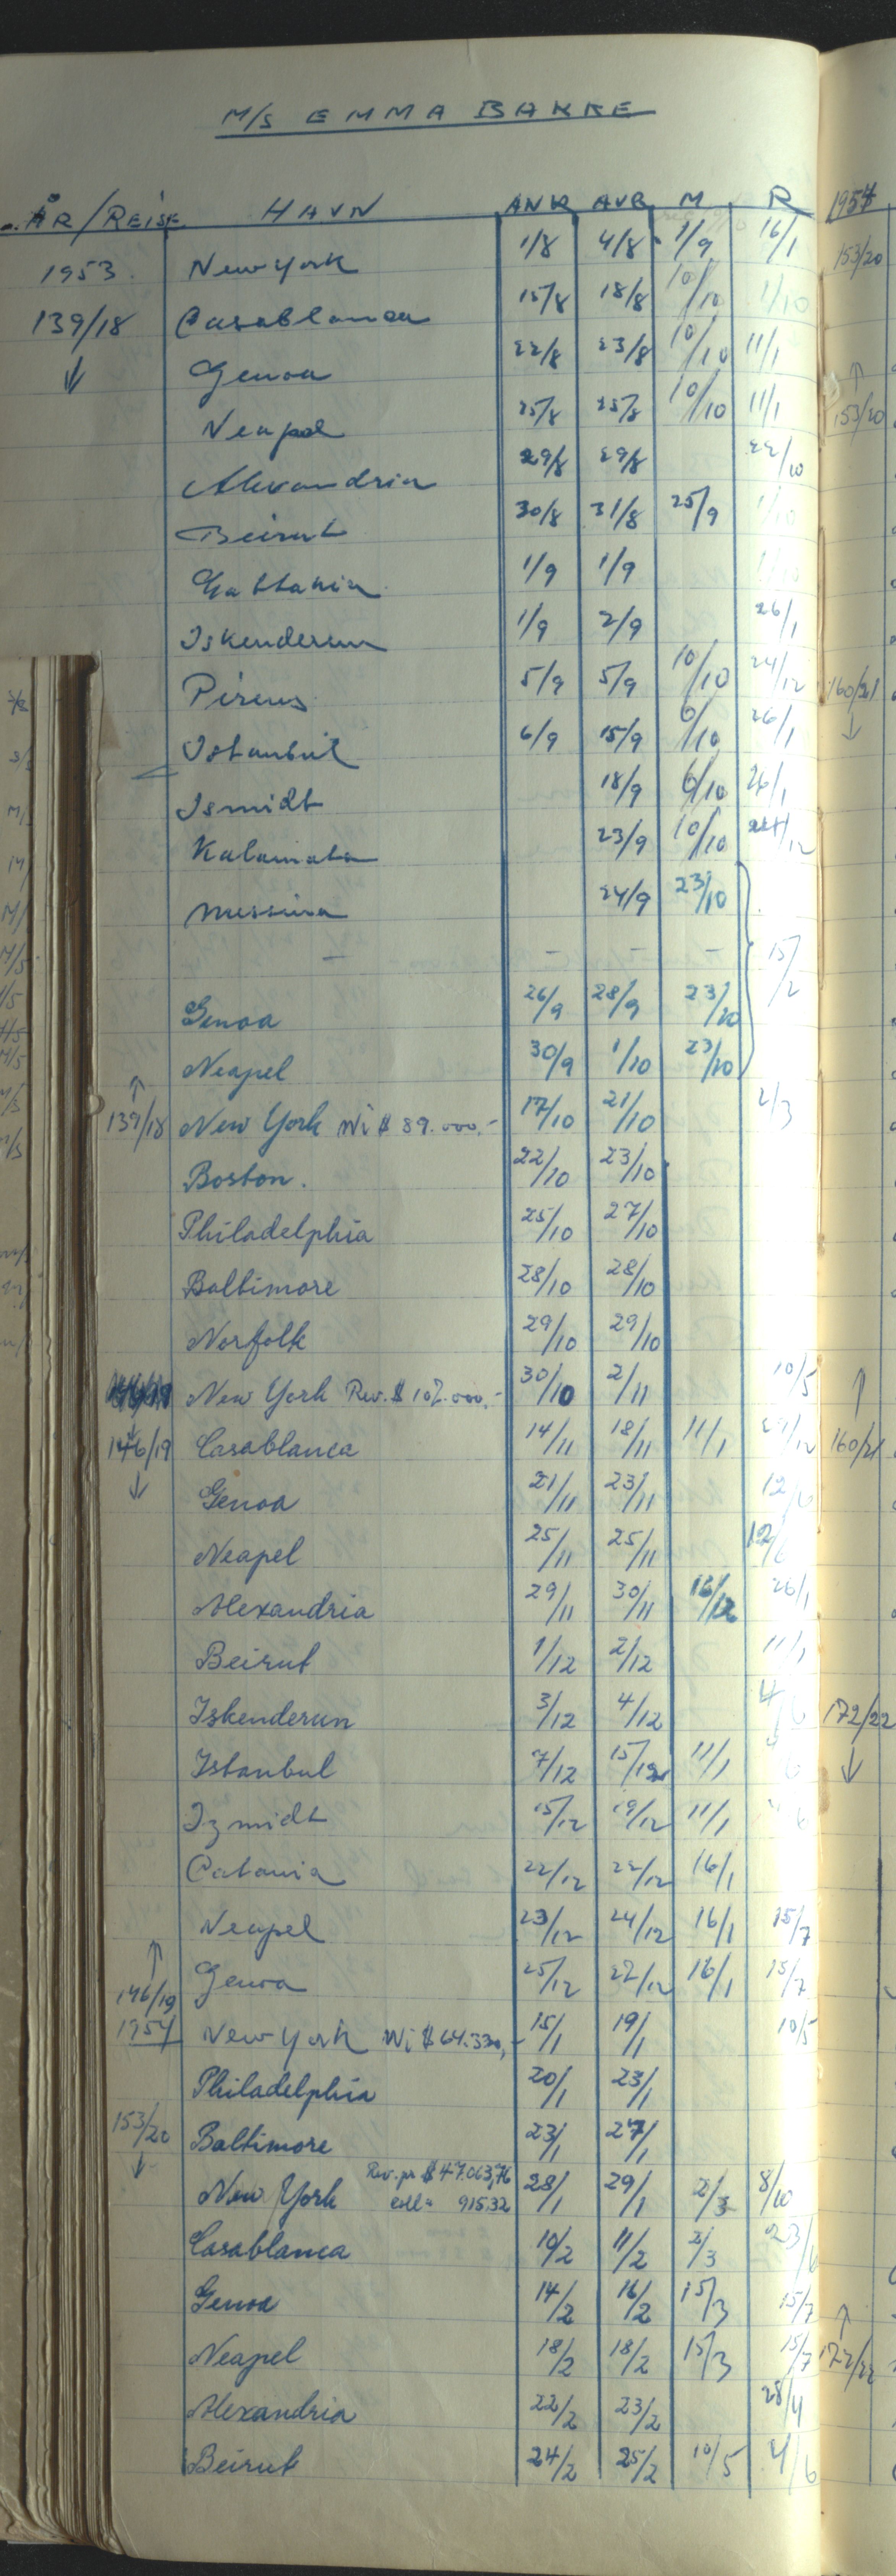 M/S EMMA BAKKE
ÅR/REISE HAVN ANK AVG M R
1953 New York 1/8 4/8 1/9 16/1
139/18 Casablanca 15/8 18/8 10/10 1/10
↓ Genoa 22/8 23/8 10/10 11/1
Neapel 25/8 25/8 10/10 11/1
Alexandria 29/8 29/8 22/10
Beirut 30/8 31/8 25/9 1/10
1/9 1/9
Iskenderun 1/9 2/9 26/1
Pireus 5/9 5/9 10/10 24/12
Istanbul 6/9 15/9 6/10 26/1
Ismidt 18/9 6/10 26/1
Kalamata 23/9 10/10 24/12
Messina 24/9 23/10
— — — — 15/2
Genoa 26/9 28/9 23/10
Neapel 30/9 1/10 23/10
↑
139/18 New York Wi $ 89.000,- 17/10 21/10 2/3
Boston. 22/10 23/10
Philadelphia 25/10 27/10
Baltimore 28/10 28/10
Norfolk 29/10 29/10
New York Rev. $ 107.000,- 30/10 2/11 10/5
146/19 Casablanca 14/11 18/11 11/1
↓ Genoa 21/11 23/11
Neapel 25/11 25/11
Alexandria 29/11 30/11 16/12 26/1
Beirut 1/12 2/12 11/1
Iskenderun 3/12 4/12 4/6
Istanbul 7/12 15/12 11/1
Izmidt 15/12 19/12 11/1
Catania 22/12 22/12 16/1
Neapel 23/12 24/12 16/1 15/7
↑
146/19 Genoa 25/12 27/12 16/1 15/7
1954 New York Wi $ 64.330,- 15/1 19/1 10/5
Philadelphia 20/1 23/1
153/20 Baltimore 23/1 27/1
↓ New York Rev. pr $ 47.063,76 28/1 29/1 2/3 8/10
coll = 91532
Casablanca 10/2 11/2 2/3 23/6
Genoa 14/2 16/2 15/3 15/7
Neapel 18/2 18/2 15/3 15/7
Alexandria 22/2 23/2 28/4
Beirut 24/2 25/2 10/5 4/6
1954
153/20
↑
153/20
160/21
↓
↑
160/21
172/22
↓
↑
172/22